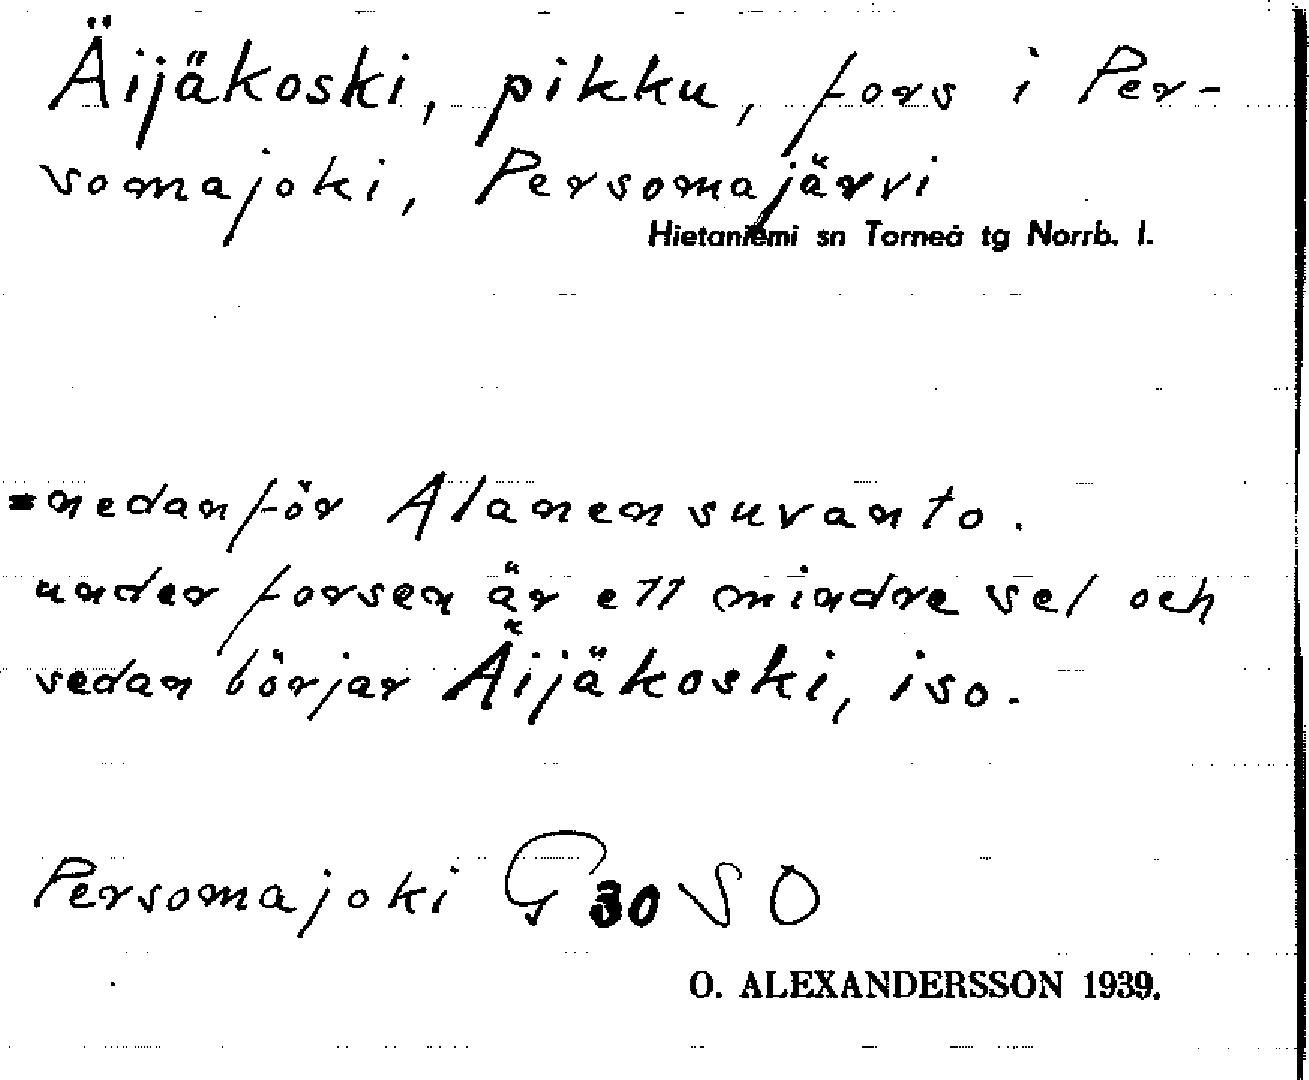 Äijäkoski, pikku, fors i Per-
somajoki, Persomajärvi
Hietaniemi sn Torneå tg Norrb. l.
=nedanför Alanensuvanto.
under forsen är ett mindre sel och
sedan börjar Äijäkoski, iso.
Persomajoki G 30 SO
O. ALEXANDERSSON 1939.